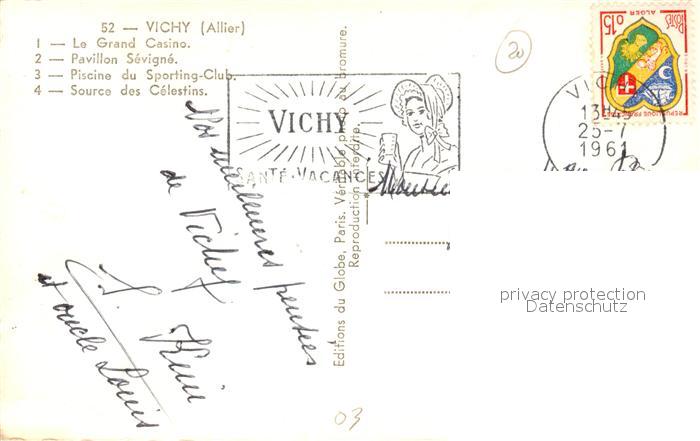 52 — VICHY (Allier)
1 — Le Grand Casino.
2 — Pavillon Sévigné.
3 — Piscine du Sporting-Club.
4 — Source des Célestins.
20
POSTES
0,15
ALGER
REPUBLIQUE FRANÇAISE
VICHY
SANTÉ-VACANCES
VIC
13H
25-7
1961
Nos meilleures pensées
de Vichy
et oncle Louis
Editions du Globe, Paris. Véritable photo au bromure.
Reproduction interdite.
privacy protection
Datenschutz
03